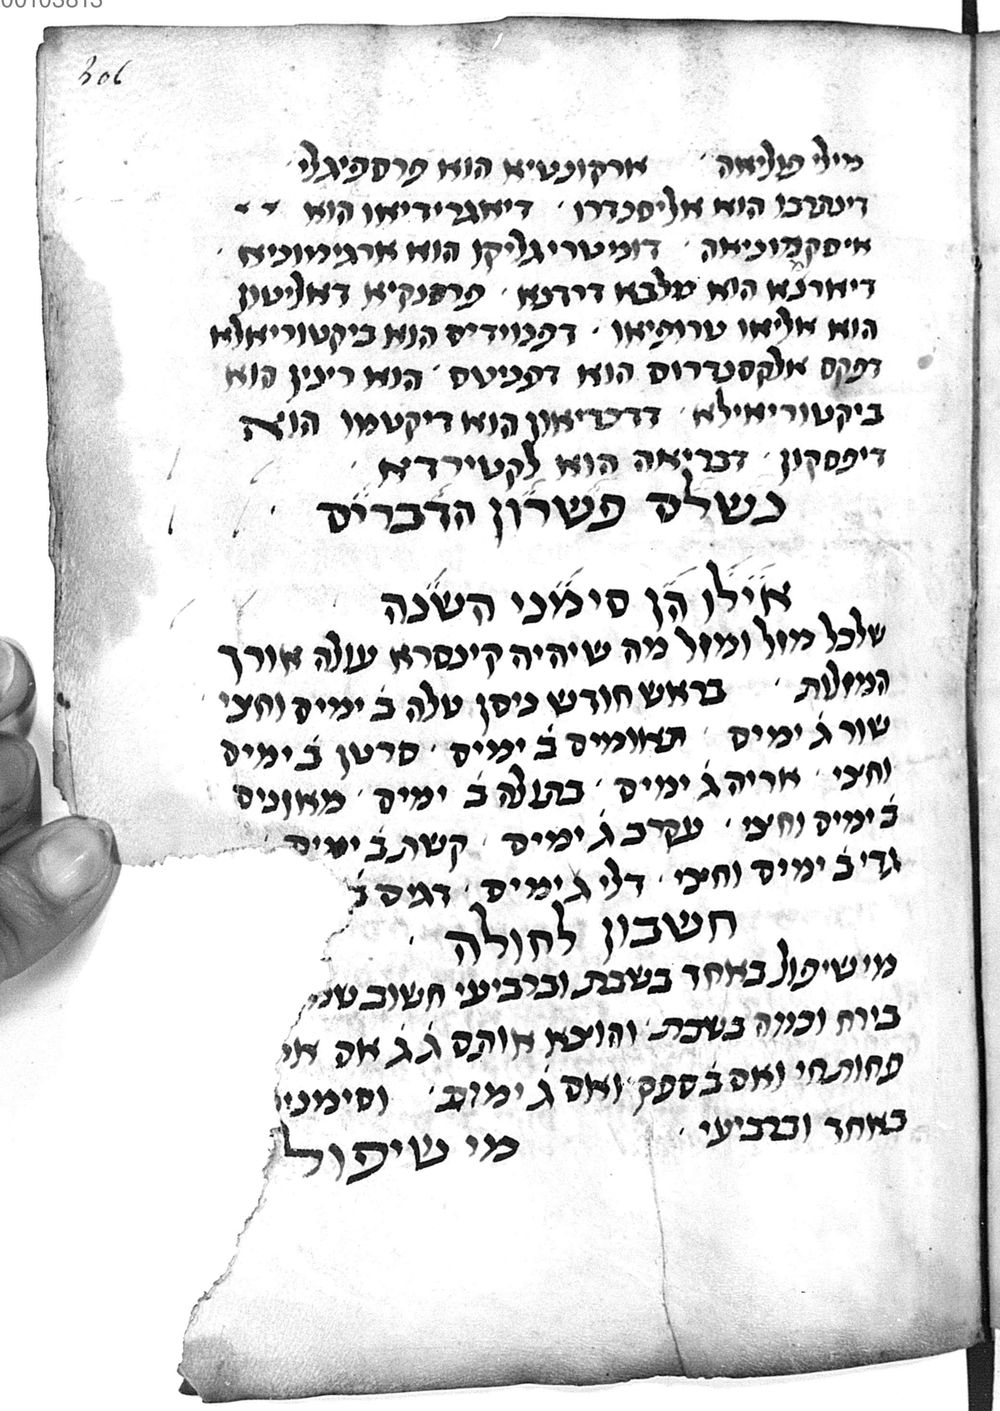 00103813
206
מילי פוליאה ארקונטיא הוא פרספיגלי
דינתרבו הוא אליסכדרו דיאגרידיאון הוא
איסקמוניאה דומיטריגליקן הוא ארגימוניא
דיארנא הוא מלבא דירנא פרסנקיא דאליטון
הוא אליאו טרופיאו דפנוידיס הוא ביקטוריאולא
דפקס אלקסנדרוס הוא דפניטס הוא רינין הוא
ביקטוריאילא דדכריאון הוא דיקטמו הואה
דיפסקון דבריאה הוא לקטירדא
נשלם פשרון הדברים
אילו הן סימני השנה
שלכל מזל ומזל מה שיהיה קינסרא עולה אורך
המזלות בראש חודש ניסן טלה ב ימים וחצי
שור ג ימים תאומים ב ימים סרטן ב ימים
וחצי אריה ג ימים בתולה ב ימים מאזנים
ב ימים וחצי עקרב ג ימים קשת ב ימים
גדי ב ימים וחצי דלי ג ימים דגים ב
חשבון לחולה
מי שיפול באחד בשבת וברביעי חשוב שמ
בירח וכמה בשבת והוצא אותם ג ג אם אי
פחות חי ואם ב ספק ואם ג ימות וסימני
באחד וברביעי
מי שיפול